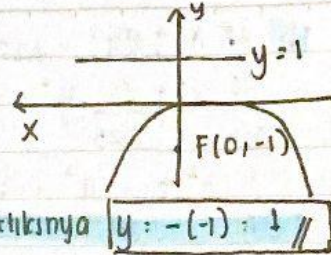 y
y = 1
x
F(0,-1)
tiksnya y = -(-1) = 1 //